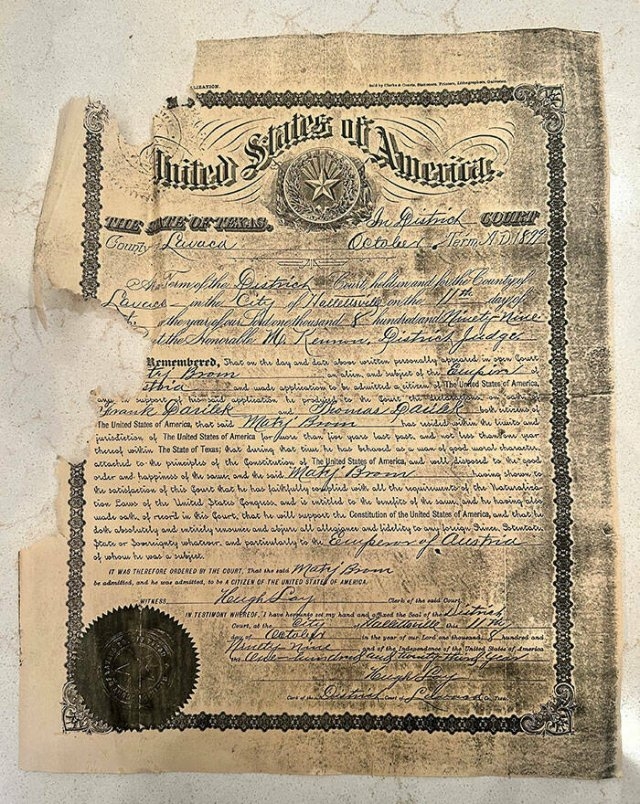 LIZATION.
Sold by Clarke & Courts, Stationers, Printers, Lithographers, Galveston.
United States of America.
THE STATE OF TEXAS, In District COURT
County Lavaca October Term, A.D. 1899
At Term of the District Court, holden and for the County of
Lavaca in the City of Hallettsville on the 11th day of
the year of our Lord one thousand 8 hundred and Ninety Nine
the Honorable M. Kennon, District Judge
Remembered, That on the day and date above written personally appeared in open Court
ty Brom an alien, and subject of the Empire of
tria and made application to be admitted a citizen of The United States of America,
and in support of his said application, he produced to the Court the
Frank Darilek and Thomas Darilek both citizens of
The United States of America, that said Maty Brom has resided within the limits and
jurisdiction of The United States of America for more than five years last past, and not less than one year
thereof within The State of Texas; that during that time he has behaved as a man of good moral character,
attached to the principles of the Constitution of The United States of America, and well disposed to the good
order and happiness of the same; and the said Maty Brom having shown to
the satisfaction of this Court that he has faithfully complied with all the requirements of the Naturaliza-
tion Laws of the United States Congress, and is entitled to the benefits of the same, and he having also
made oath, of record in this Court, that he will support the Constitution of the United States of America, and that he
doth absolutely and entirely renounce and abjure all allegiance and fidelity to any foreign Prince, Potentate,
State or Sovereignty whatever, and particularly to the Emperor of Austria
of whom he was a subject.
IT WAS THEREFORE ORDERED BY THE COURT, That the said Maty Brom
be admitted, and he was admitted, to be A CITIZEN OF THE UNITED STATES OF AMERICA.
WITNESS Hugh Lay Clerk of the said Court
IN TESTIMONY WHEREOF, I have hereunto set my hand and affixed the Seal of the District
Court, at the City Hallettsville on 11th
day of October in the year of our Lord one thousand 8 hundred and
Ninety-Nine and of the Independence of the United States of America
the One hundred and twenty third Year
Hugh Lay
Clerk of the District Court of Lavaca Co. Texas